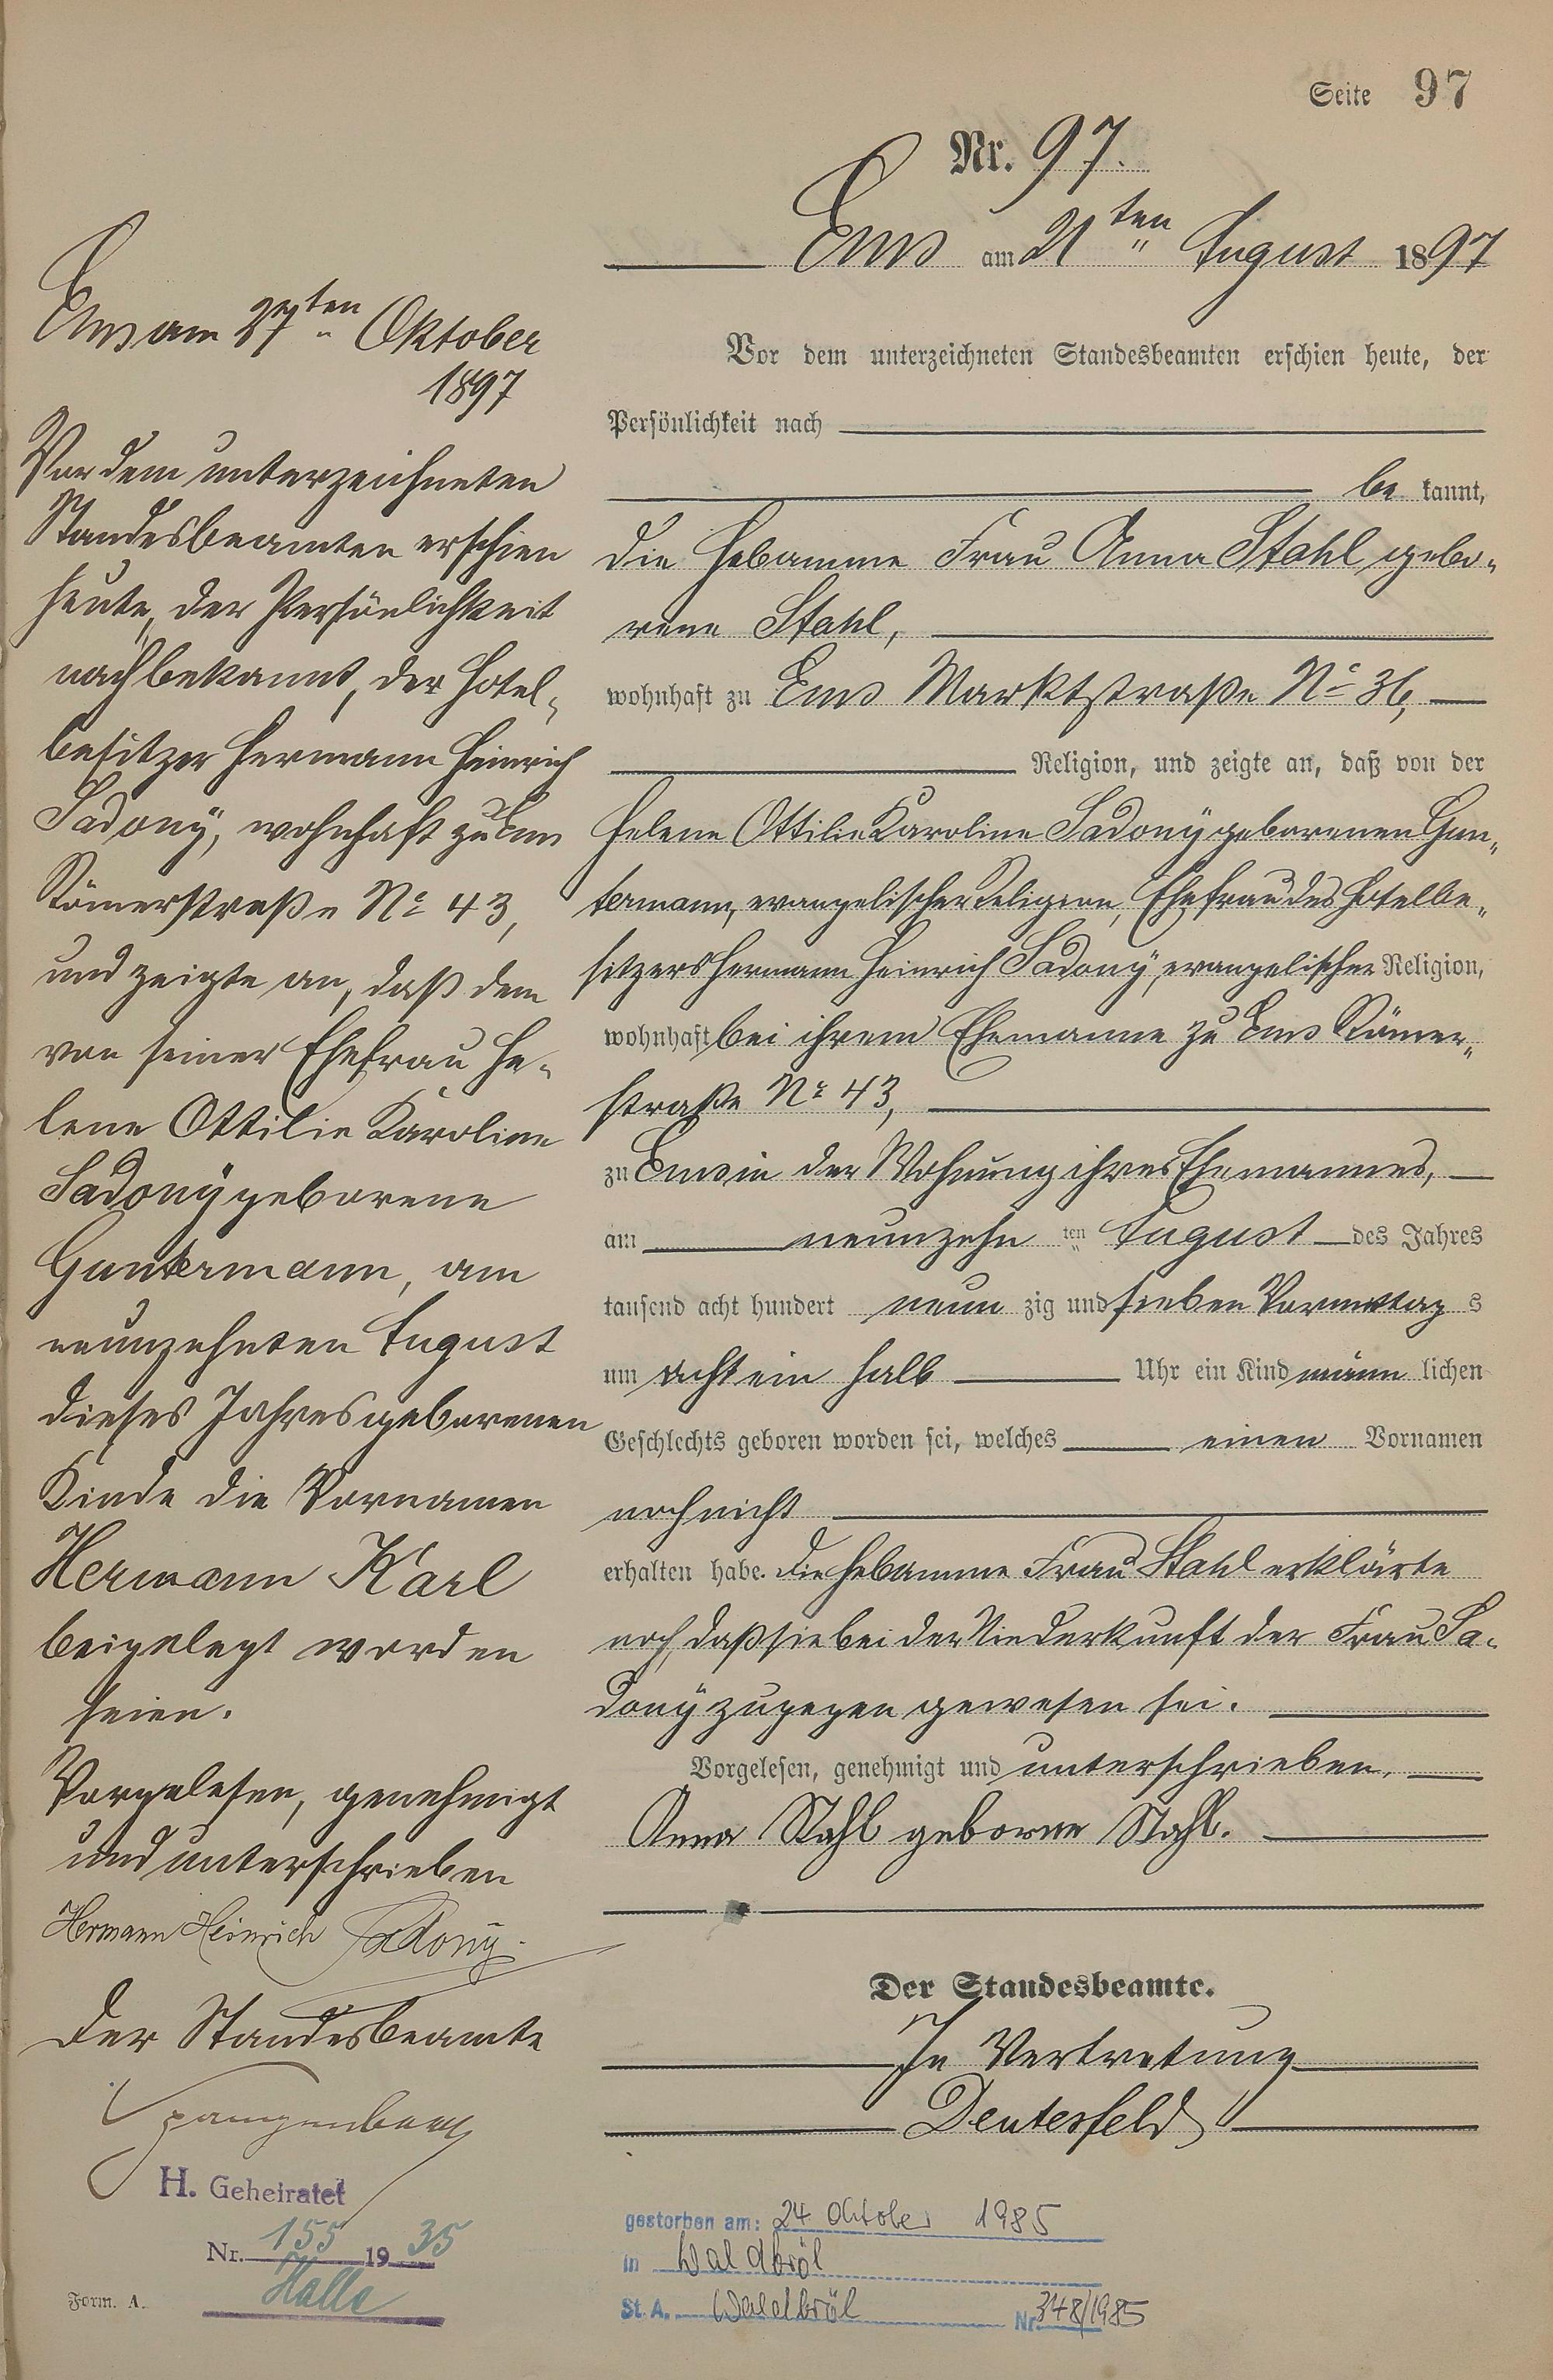 Seite 97
Nr. 97.
Ems am 21ten August 1897
Vor dem unterzeichneten Standesbeamten erschien heute, der
Persönlichkeit nach
be kannt,
die Hebamme Frau Anna Stahl, gebo-
rene Stahl,
wohnhaft zu Ems Marktstraße No 36,
Religion, und zeigte an, daß von der
Helene Ottilie Karoline Sadony geborenen Gun-
termann, evangelischer Religion, Ehefrau des Hotelbe-
sitzers Hermann Heinrich Sadony, evangelischer Religion,
wohnhaft bei ihrem Ehemanne zu Ems Römer-
straße No 43,
zu Ems in der Wohnung ihres Ehemannes,
am neunzehn ten August des Jahres
tausend acht hundert neun zig und sieben Vormittag s
um acht ein halb Uhr ein Kind männ lichen
Geschlechts geboren worden sei, welches einen Vornamen
noch nicht
erhalten habe. Die Hebamme Frau Stahl erklärte
noch, daß sie bei der Niederkunft der Frau Sa-
dony zugegen gewesen sei.
Vorgelesen, genehmigt und unterschrieben.
Anna Stahl geborne Stahl.
Der Standesbeamte.
In Vertretung
Deutesfeld
Ems am 27ten Oktober
1897
Vor dem unterzeichneten
Standesbeamten erschien
heute, der Persönlichkeit
nach bekannt, der Hotel-
besitzer Hermann Heinrich
Sadony, wohnhaft zu Ems
Römerstraße No 43,
und zeigte an, daß dem
von seiner Ehefrau He-
lene Ottilie Karoline
Sadony geborene
Guntermann, am
neunzehnten August
dieses Jahres geborenen
Kinde die Vornamen
Hermann Karl
beigelegt worden
seien.
Vorgelesen, genehmigt
und unterschrieben
Hermann Heinrich Sadony.
Der Standesbeamte
Spangenberg
H. Geheiratet
Nr. 155 1935
Halle
Form. A.
gestorben am: 24 Oktober 1985
in Waldbröl
St. A. Waldbröl Nr. 348/1985